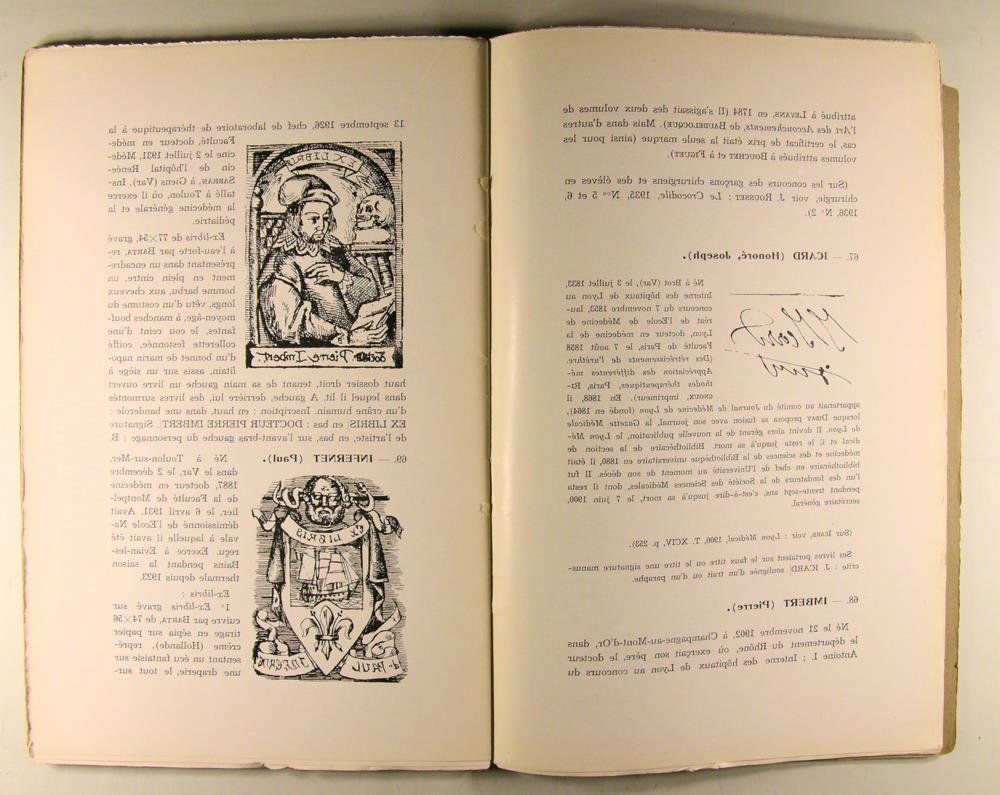 attribué à LEVANS, en 1784 (Il s'agissait des deux volumes de
l'Art des Accouchements, de BAUDELOCQUE). Mais dans d'autres
cas, le certificat de prix était la seule marque (ainsi pour les
volumes attribués à BOUCHET et à FIGUET)
(Sur les concours des garçons chirurgiens et des élèves en
chirurgie, voir J. ROUSSET : Le Crocodile, 1935, Nos 5 et 6,
1936, N° 2).
67. — ICARD (Honoré, Joseph).
Né à Brot (Var), le 3 juillet 1833.
Interne des hôpitaux de Lyon au
concours du 7 novembre 1853, lau-
réat de l'Ecole de Médecine de
Lyon, docteur en médecine de la
Faculté de Paris, le 7 août 1858
(Des rétrécissements de l'urèthre.
Appréciation des différentes mé-
thodes thérapeutiques, Paris, Ri-
gnoux, imprimeur). En 1868, il
appartenait au comité du Journal de Médecine de Lyon (fondé en 1864),
lorsque DIDAY proposa sa fusion avec son journal, la Gazette Médicale
de Lyon. Il devint alors gérant de la nouvelle publication, le Lyon Mé-
dical et il le resta jusqu'à sa mort. Bibliothécaire de la section de
médecine et des sciences de la Bibliothèque universitaire en 1880, il était
bibliothécaire en chef de l'Université au moment de son décès. Il fut
l'un des fondateurs de la Société des Sciences Médicales, dont il resta
pendant trente-sept ans, c'est-à-dire jusqu'à sa mort, le 7 juin 1900,
secrétaire général.
(Sur ICARD, voir : Lyon Médical, 1900, T. XCIV, p. 253).
Ses livres portaient sur le faux titre ou le titre une signature manus-
crite : J. ICARD, soulignée d'un trait ou d'un paraphe.
68. — IMBERT (Pierre).
Né le 21 novembre 1902, à Champagne-au-Mont-d'Or, dans
le département du Rhône, où exerçait son père, le docteur
Antoine I. ; Interne des hôpitaux de Lyon au concours du
13 septembre 1926, chef de laboratoire de thérapeutique à la
Faculté, docteur en méde-
cine le 2 juillet 1931, Méde-
cin de l'hôpital Renée-
SABRAN, à Giens (Var). Ins-
tallé à Toulon, où il exerce
la médecine générale et la
pédiatrie.
EX LIBRIS
Docteur Pierre Imbert
Ex-libris de 77×54, gravé
à l'eau-forte par BARTA, re-
présentant dans un encadre-
ment en plein cintre, un
homme barbu, aux cheveux
longs, vêtu d'un costume du
moyen-âge, à manches bouf-
fantes, le cou ceint d'une
collerette festonnée, coiffé
d'un bonnet de marin napo-
litain, assis sur un siège à
haut dossier droit, tenant de sa main gauche un livre ouvert
dans lequel il lit. A gauche, derrière lui, des livres surmontés
d'un crâne humain. Inscription : en haut, dans une banderole :
EX LIBRIS en bas : DOCTEUR PIERRE IMBERT. Signature
de l'artiste, en bas, sur l'avant-bras gauche du personnage : B.
69. — INFERNET (Paul).
Né à Toulon-sur-Mer,
dans le Var, le 2 décembre
1887, docteur en médecine
de la Faculté de Montpel-
lier, le 6 avril 1931. Avait
démissionné de l'Ecole Na-
vale à laquelle il avait été
reçu. Exerce à Evian-les-
Bains pendant la saison
thermale depuis 1923.
Ex-libris :
1° Ex-libris gravé sur
cuivre par BARTA, de 74×56
tirage en sépia sur papier
crème (Hollande), repré-
sentant un écu fantaisie sur
une draperie, le tout sur-
EX LIBRIS
PAUL INFERNET